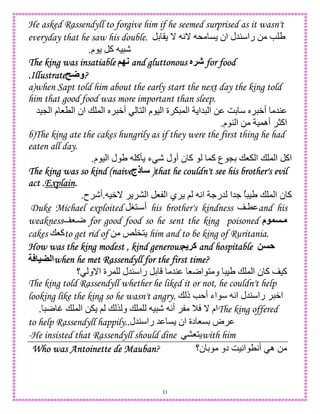 He asked Rassendyll to forgive him if he seemed surprised as it wasn't
everyday that he saw his double. طلب من راسندل ان يسامحه لانه لا يقابل
شبيه كل يوم.
The king was insatiable نهم and gluttonous شره for food
.Illustrate وضح?
a)when Sapt told him about the early start the next day the king told
him that good food was more important than sleep.
عندما أخبره سابت عن البداية المبكرة اليوم التالي أخبره الملك ان الطعام الجيد
اكثر أهمية من النوم.
b)The king ate the cakes hungrily as if they were the first thing he had
eaten all day.
اكل الملك الكعك بجوع كما لو كان أول شيء يأكله طول اليوم.
The king was so kind (naive ساذج)that he couldn't see his brother's evil
act .Explain.
كان الملك طيباً جدا لدرجة انه لم يري الفعل الشرير لاخيه.أشرح.
Duke Michael exploited أستغل his brother's kindness عطف and his
weakness ضعف for good food so he sent the king poisoned مسموم
cakes كعك to get rid of يتخلص من him and to be king of Ruritania.
How was the king modest , kind generous كريم and hospitable حسن
الضيافة when he met Rassendyll for the first time?
كيف كان الملك طيبا ومتواضعا عندما قابل راسندل للمرة الاولي؟
The king told Rassendyll whether he liked it or not, he couldn't help
looking like the king so he wasn't angry. اخبر راسندل انه سواء أحب ذلك
ام لا فلا مفر أنه شبيه للملك ولذلك لم يكن الملك غاضبا. The king offered
to help Rassendyll happily..عرض بسعادة ان يساعد راسندل
-He insisted that Rassendyll should dine يتعشي with him
Who was Antoinette de Mauban? من هي أنطوانيت دو موبان؟
33